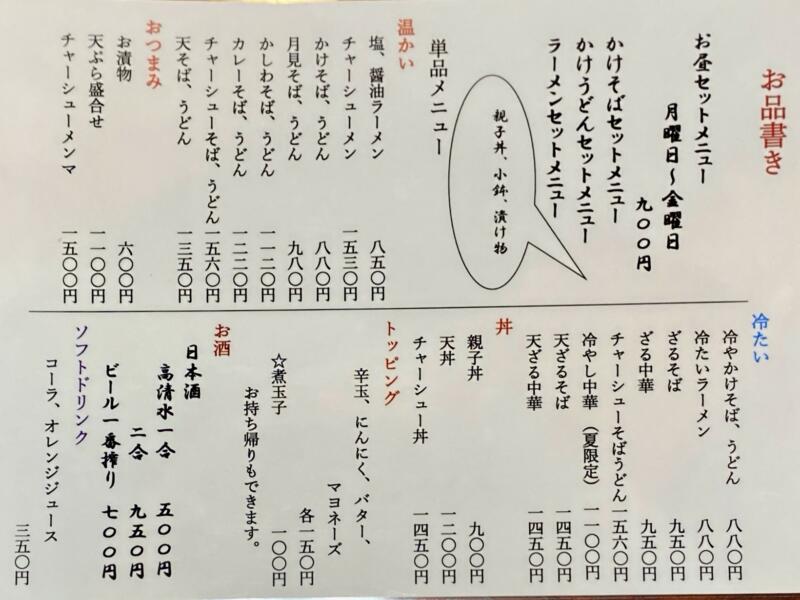 お品書き
お昼セットメニュー
月曜日～金曜日
九〇〇円
かけそばセットメニュー
かけうどんセットメニュー
ラーメンセットメニュー
親子丼、小鉢、漬け物
単品メニュー
温かい
塩、醤油ラーメン 八五〇円
チャーシューメン 一五三〇円
かけそば、うどん 八八〇円
月見そば、うどん 九八〇円
かしわそば、うどん 一一二〇円
カレーそば、うどん 一二二〇円
チャーシューそば、うどん 一五六〇円
天そば、うどん 一三五〇円
おつまみ
お漬物 六〇〇円
天ぷら盛合せ 一一〇〇円
チャーシューメンマ 一五〇〇円
冷たい
冷やかけそば、うどん 八八〇円
冷たいラーメン 八八〇円
ざるそば 九五〇円
ざる中華 九五〇円
チャーシューそばうどん 一五六〇円
冷やし中華（夏限定） 一一〇〇円
天ざるそば 一四五〇円
天ざる中華 一四五〇円
丼
親子丼 九〇〇円
天丼 一二〇〇円
チャーシュー丼 一四五〇円
トッピング
辛玉、にんにく、バター、
マヨネーズ
各一五〇円
☆煮玉子 一〇〇円
お持ち帰りもできます。
お酒
日本酒
高清水一合 五〇〇円
二合 九五〇円
ビール一番搾り 七〇〇円
ソフトドリンク
コーラ、オレンジジュース
三五〇円